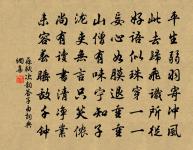 平生弱羽寄衝風
此去歸飛識所從
好語似珠穿一一
妄心如膜退重重
山僧有味寧知子
瀧吏無言只笑儂
尚有讀書清淨業
未容春睡敵千鍾
蘇軾次韻答子由詞典
網集